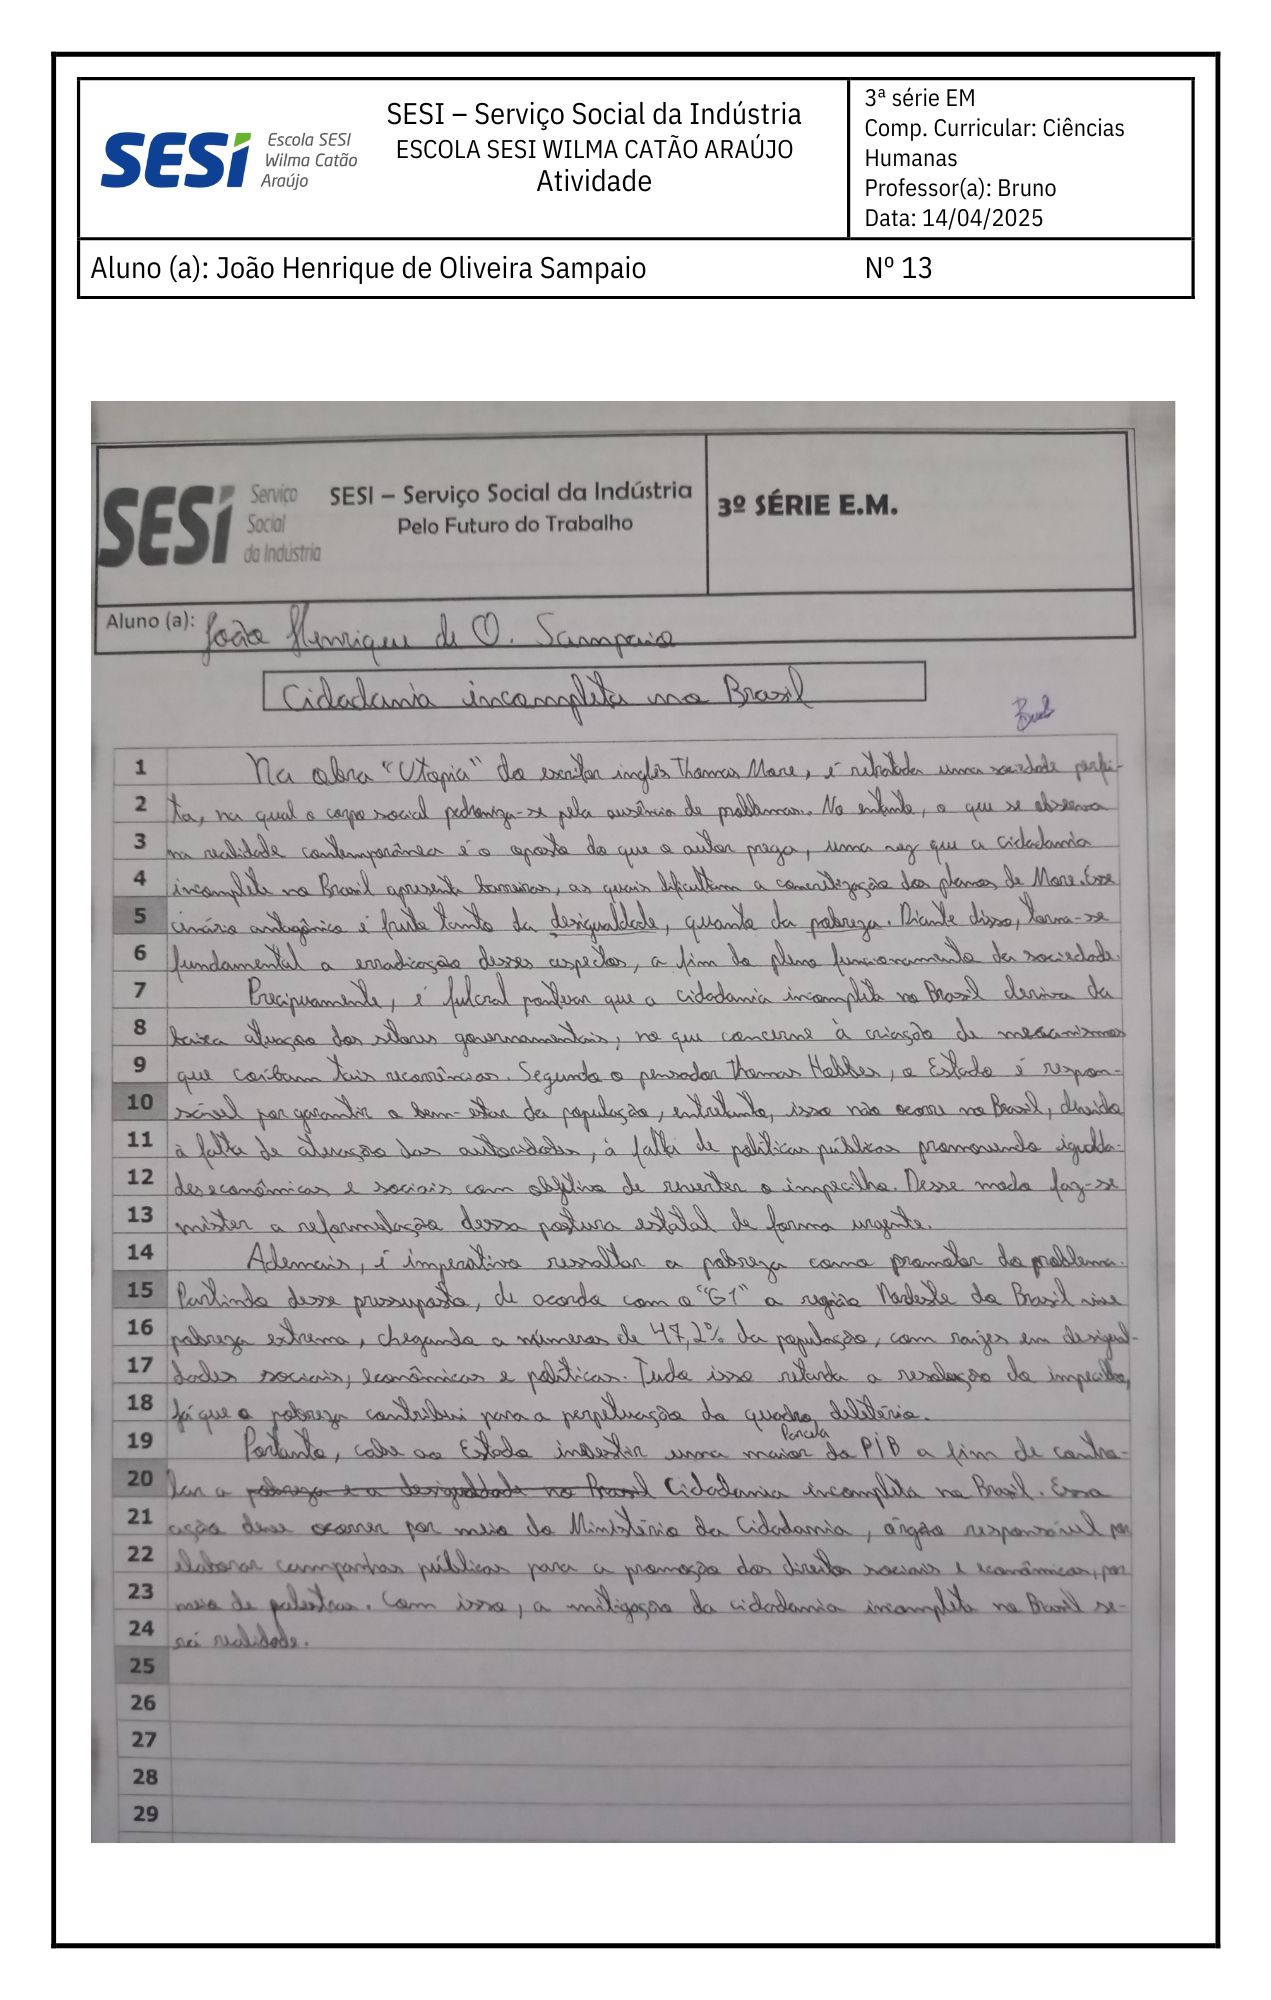 SESI
Escola SESI
Wilma Catão
Araújo
SESI – Serviço Social da Indústria
ESCOLA SESI WILMA CATÃO ARAÚJO
Atividade
3ª série EM
Comp. Curricular: Ciências
Humanas
Professor(a): Bruno
Data: 14/04/2025
Aluno (a): João Henrique de Oliveira Sampaio
Nº 13
SESI
Serviço
Social
da Indústria
SESI – Serviço Social da Indústria
Pelo Futuro do Trabalho
3º SÉRIE E.M.
Aluno (a): João Henrique de O. Sampaio
Cidadania incompleta no Brasil
1 Na obra "Utopia" do escritor inglês Thomas More, é retratada uma sociedade perfei-
2 ta, na qual o corpo social padroniza-se pela ausência de problemas. No entanto, o que se observa
3 na realidade contemporânea é o oposto do que o autor prega, uma vez que a cidadania
4 incompleta no Brasil apresenta barreiras, as quais dificultam a concretização dos planos de More. Esse
5 cenário antagônico é fruto tanto da desigualdade, quanto da pobreza. Diante disso, torna-se
6 fundamental a erradicação desses aspectos, a fim do pleno funcionamento da sociedade.
7 Precipuamente, é fulcral pontuar que a cidadania incompleta no Brasil deriva da
8 baixa atuação dos setores governamentais, no que concerne à criação de mecanismos
9 que coíbam tais recorrências. Segundo o pensador Thomas Hobbes, o Estado é respon-
10 sável por garantir o bem-estar da população, entretanto, isso não ocorre no Brasil, devido
11 à falta de atuação das autoridades, à falta de políticas públicas promovendo igualda-
12 des econômicas e sociais com objetivo de reverter o impecilho. Desse modo faz-se
13 mister a reformulação dessa postura estatal de forma urgente.
14 Ademais, é imperativo ressaltar a pobreza como promotor do problema.
15 Partindo desse pressuposto, de acordo com o "G1" a região Nordeste do Brasil vive
16 pobreza extrema, chegando a números de 47,2% da população, com raízes em desigual-
17 dades sociais, econômicas e políticas. Tudo isso retarda a resolução do impecilho,
18 já que a pobreza contribui para a perpetuação do quadro deletério.
19 Portanto, cabe ao Estado investir uma maior Parcela do PIB a fim de contro-
20 lar a pobreza e a desigualdade no Brasil Cidadania incompleta no Brasil. Essa
21 ação deve ocorrer por meio do Ministério da Cidadania, órgão responsável por
22 elaborar campanhas públicas para a promoção dos direitos sociais e econômicos, por
23 meio de palestras. Com isso, a mitigação da cidadania incompleta no Brasil se-
24 rá realidade.
25
26
27
28
29